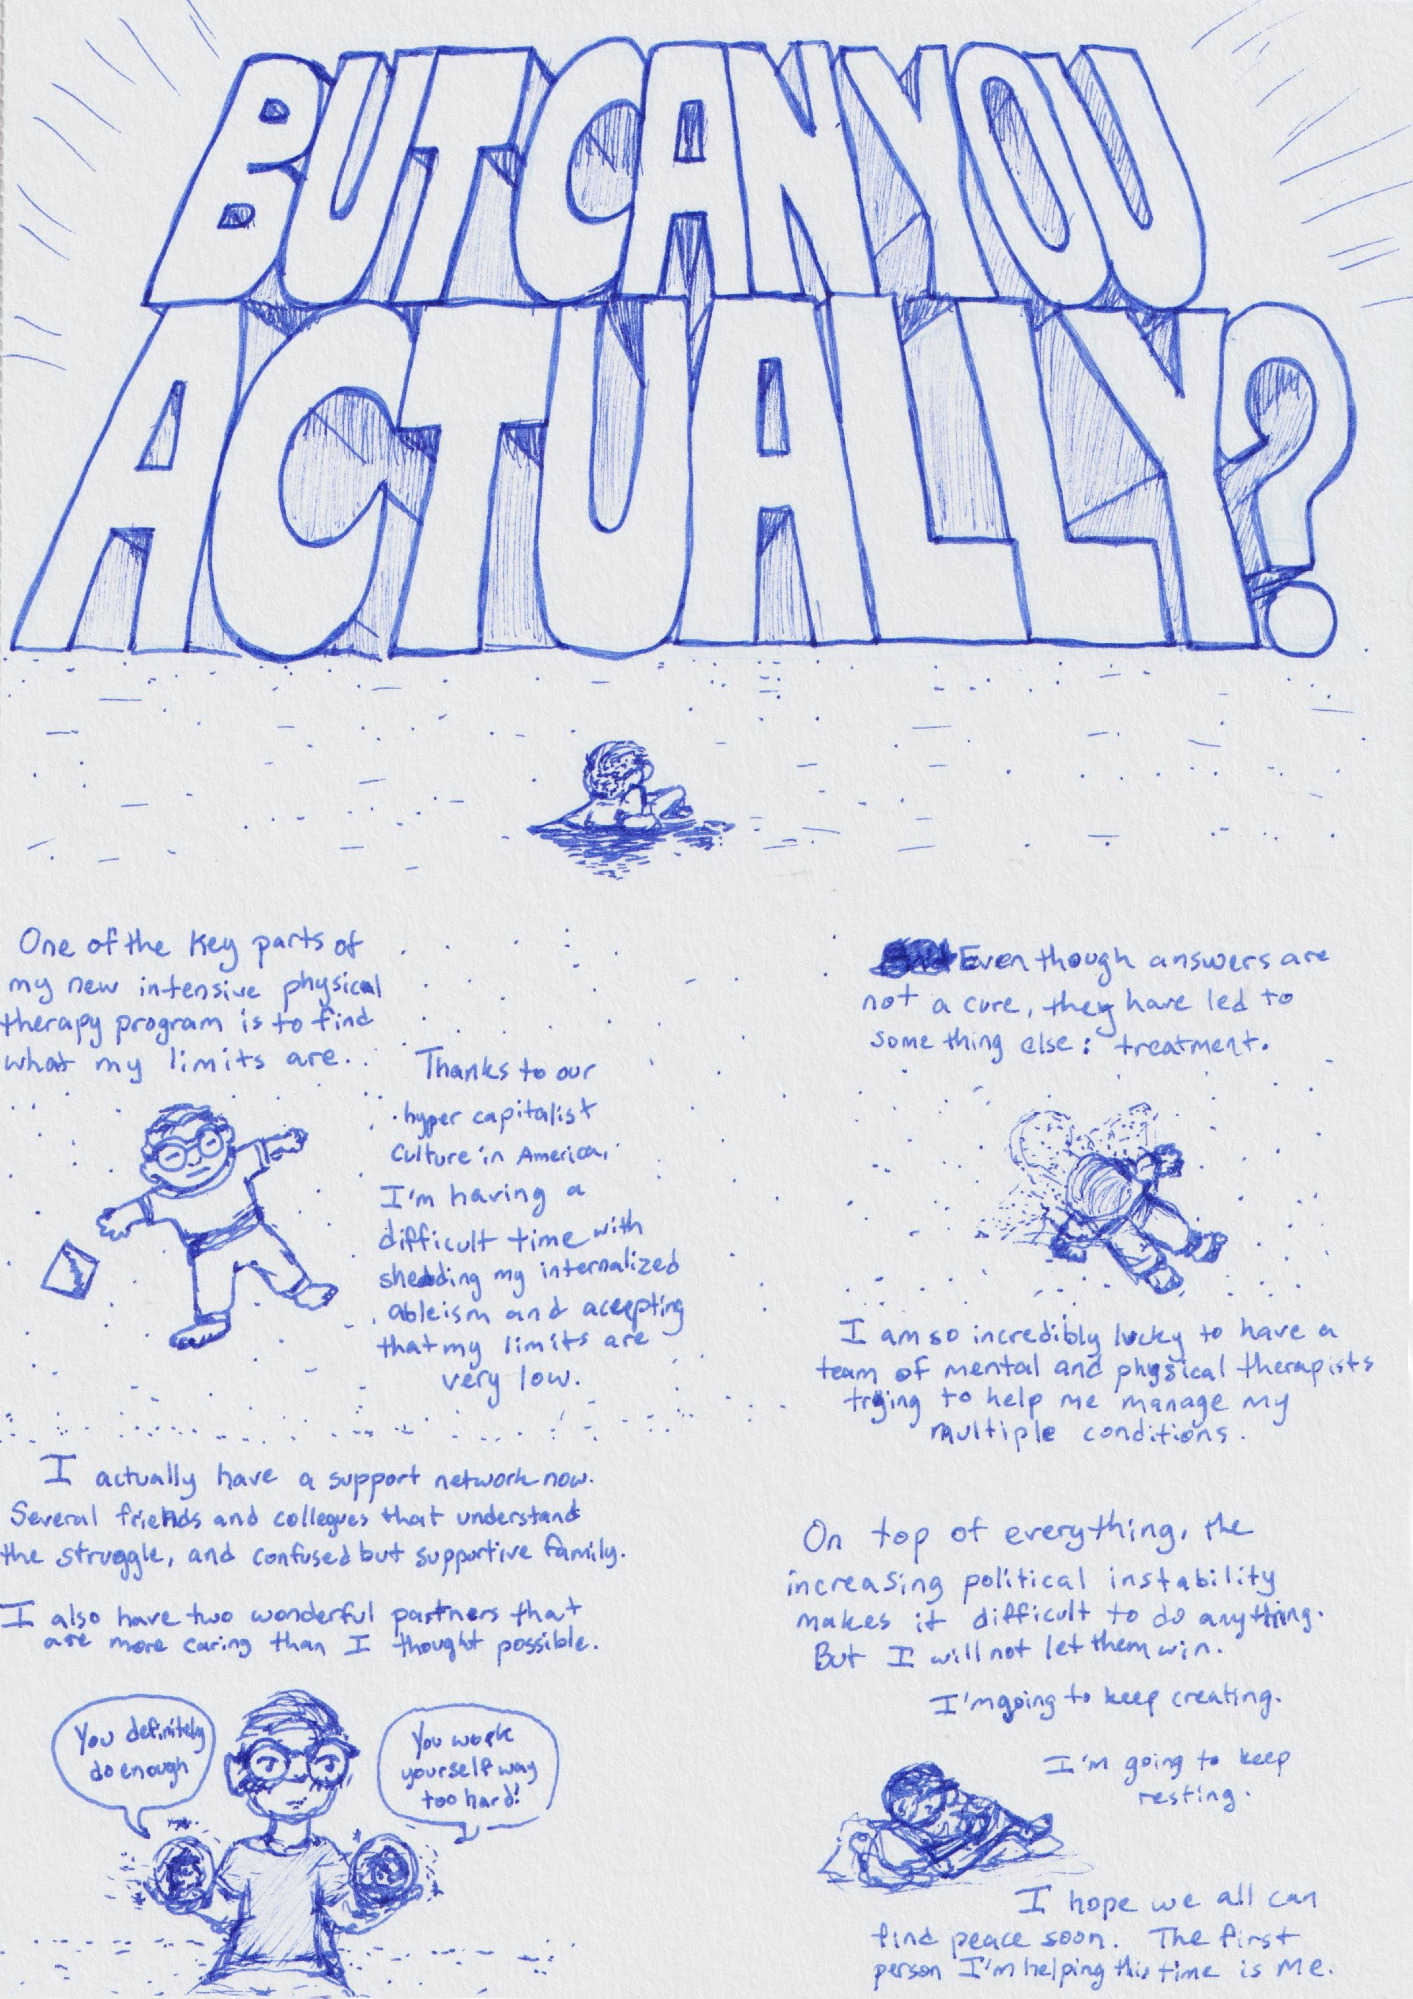 BUT CAN YOU
ACTUALLY?
One of the Key parts of
my new intensive physical
therapy program is to find
what my limits are.
Thanks to our
hyper capitalist
culture in America,
I'm having a
difficult time with
shedding my internalized
ableism and accepting
that my limits are
very low.
I actually have a support network now.
Several friends and collegues that understand
the struggle, and confused but supportive family.
I also have two wonderful partners that
are more caring than I thought possible.
You definitely
do enough
You work
yourself way
too hard!
Even though answers are
not a cure, they have led to
something else: treatment.
I am so incredibly lucky to have a
team of mental and physical therapists
trying to help me manage my
multiple conditions.
On top of everything, the
increasing political instability
makes it difficult to do anything.
But I will not let them win.
I'm going to keep creating.
I'm going to keep
resting.
I hope we all can
find peace soon. The first
person I'm helping this time is me.